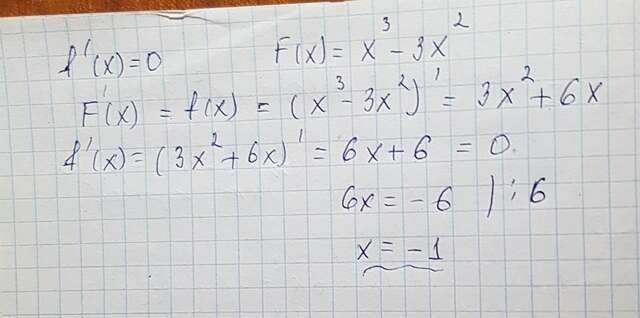 f'(x)=0    F(x)= x³-3x²
F'(x) = f(x) = (x³-3x²)' = 3x²+6x
f'(x)=(3x²+6x)' = 6x+6 = 0.
6x=-6 | :6
x=-1